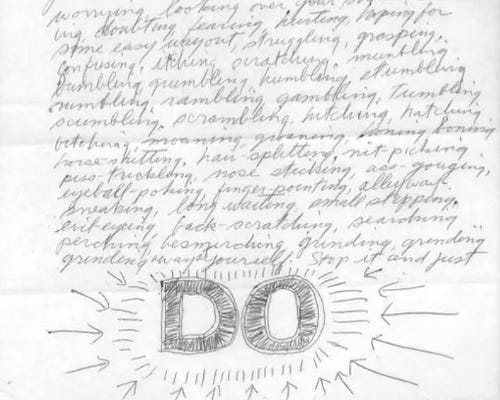 worrying, looking over your
ing, doubting, fearing, hurting, hoping for
some easy way out, struggling, grasping,
confusing, itching, scratching, mumbling
bumbling, grumbling, humbling, stumbling
numbling, rambling, gambling, tumbling
scumbling, scrambling, hitching, hatching
bitching, moaning, groaning, honing, boning
horse-shitting, hair-splitting, nit-picking
piss-trickling, nose sticking, ass-gouging,
eyeball-poking, finger-pointing, alleyway-
sneaking, long waiting, small stepping,
evil-eyeing, back-scratching, searching
perching, besmirching, grinding, grinding
grinding away at yourself. Stop it and just
DO